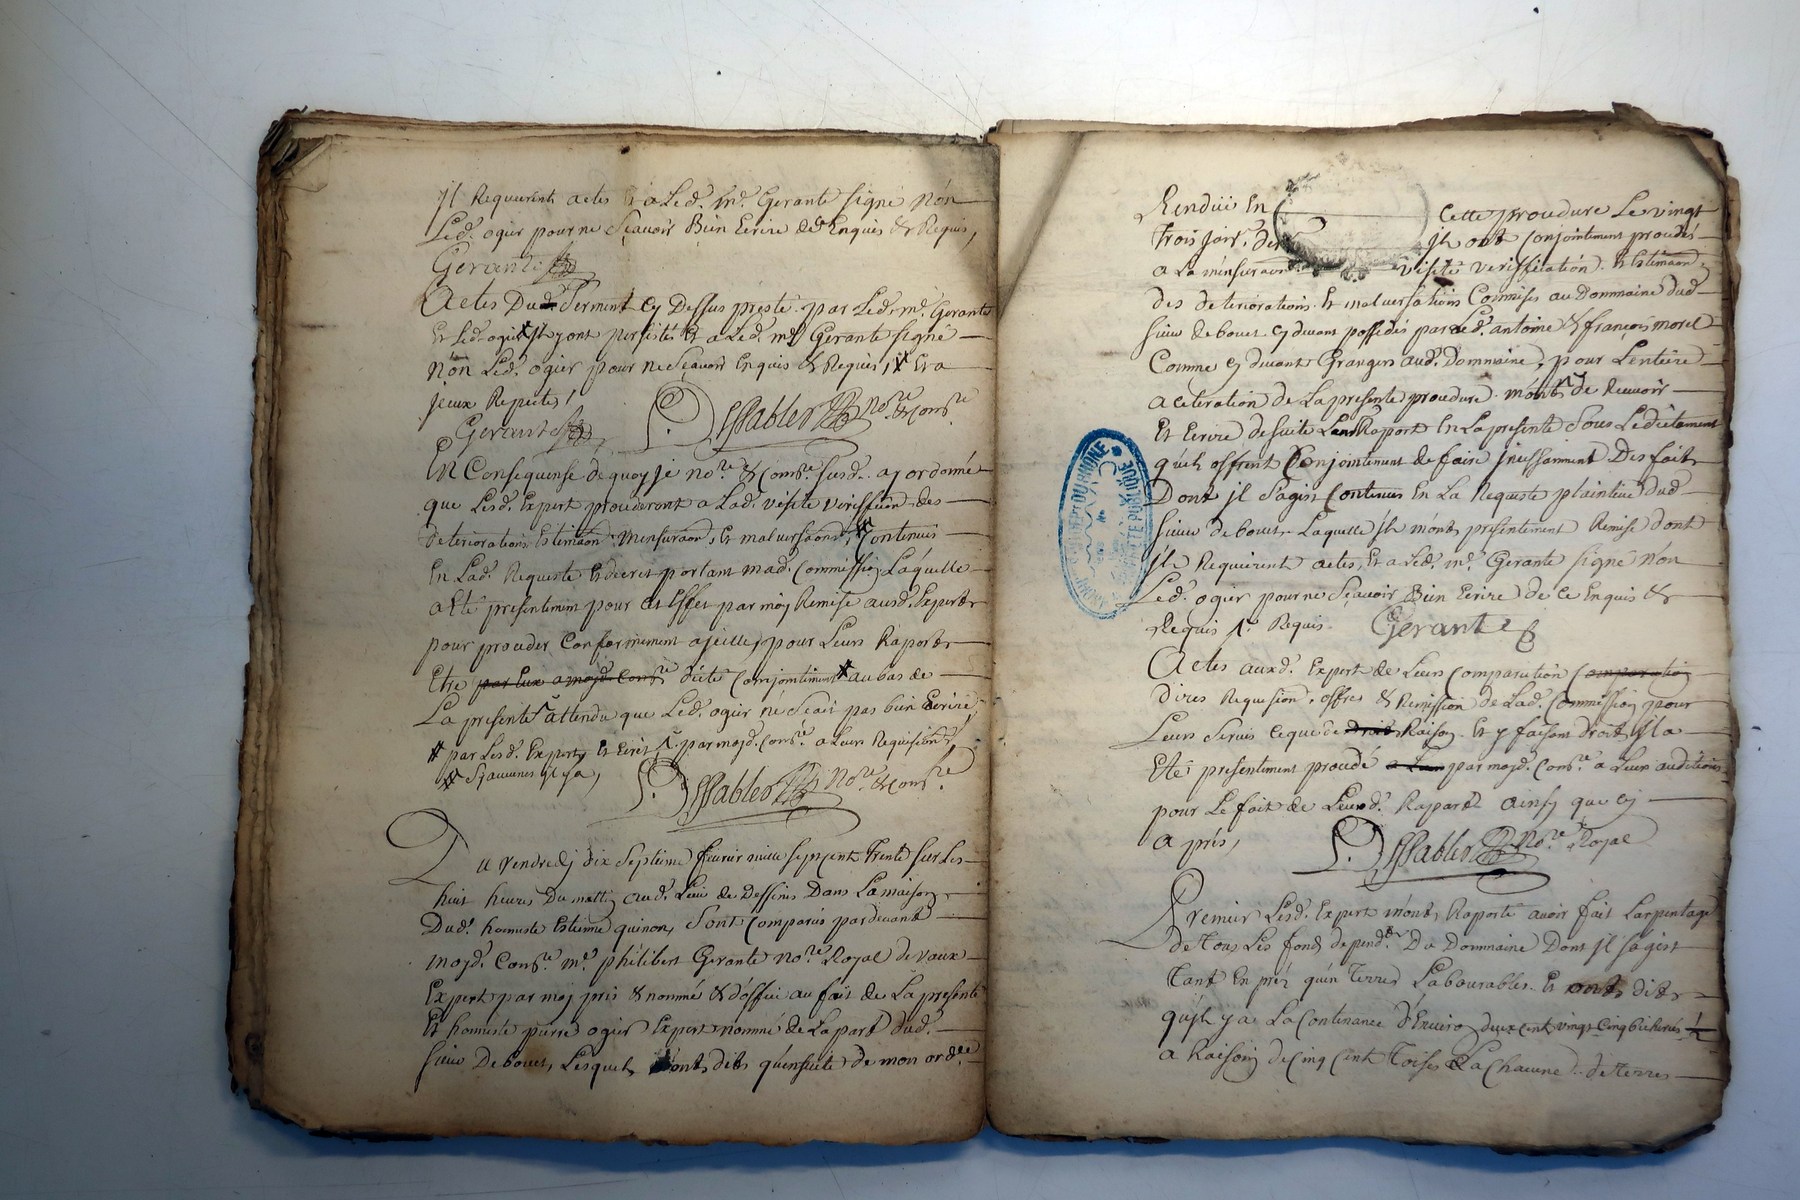 jl Requierent actes Et a Led. me. Gerante signé Nón
Led. ogier pour ne Sçavoir Bien Ecrire de Enquis & Requis,
Gerante
Actes Dud. Serment Cy Dessus presté par Led. me. Gerante
Et Led. ogier jl y ont persisté Et a Led. me Gerante signé
Nón Led. ogier pour ne Sçavoir Enquis & Requis, Et a
jeux Repetes,
Gerante DesSables Nore. & Comre
EN Consequense de quoy je Nore. & Comre. Susd. ay ordonné
que Lesd. Expert procederont a Lad. vésite veriffiión des
deteriorations Estimaon Mensuraon, Et malversaons, Contenuës
En Lad. Requeste Et decret portant mad. Commission Laquelle
a Eté presentemen pour cet Effet par moy Remise ausd. Experts
pour proceder Conformement a jcelle, pour Leurs Raports
Etre par Eux a mojd. Comre dicté Conjointement au bas de
La presente attendu que Led. ogier né Scait pas bien Ecrire,
par Lesd. Experts Et Ecrit par mojd. Comre. a Leurs Requisión
Sçavances jl ya,
DesSables Nore. & Comre.
Du vendredj dix Septieme fevrier mille Septcent Trente Sur Les
huit heures Du mattin aud. Lieu de Dessines Dans La maison
Dud. homeste Estienne quinon, Sont Comparus pardevant
mojd. Comre. me. philibert Gerante Nore Royal de vaux
Expert par moj pris & nommé & d'office au fait de La presente
Et homeste pierre ogier Expert nommé de La part dud.
Sieur De bouet, Lesquels m'ont dits qu'ensuite de mon orde
Renduë En Cette procedure Le vingt
trois janr. der jls ont Conjointement procedés
a La mensuraon visite veriffication Et Estimaon
des deteriorations Et malversations Commises au Dommaine dud
Sieur de bouet cy devant possedés par Led. antoine & françois morel
Comme cy devant Grangers aud. Dommaine, pour L'entiere
acceleration de La presente procedure m'ont de Recevoir
Et Ecrire de suite Leur Raport En La presente Sous Le dictement
qu'ils offrent Conjointement de faire jncessamment Des faits
Dont jl Sagit Contenus En La Requeste plaintive Dud
Sieur de bouet. Laquelle jls m'ont presentement Remise dont
jls Requierent actes, Et a Led. me. Gerante signé Nón
Led. ogier pour ne Sçavoir Bien Ecrire de Ce Enquis &
Requis Requis Gerante
Actes auxd. Expert de Leurs Comparution Comparution
dires Requision, offres & Remission de Lad. Commission pour
Leurs Servir ce que de droit Raison Et y faisant droit, jl a
Eté presentement procedé par mojd. Comre a Leurs auditions
pour Le fait de Leursd. Rapports ainsy que cy
a près,
DesSables Nore. Royal
Premier Lesd. Expert m'ont Raporté avoir fait Larpentage
de tous Les fonds depend. Du Dommaine Dont jl sagist
tant En préz qu'en Terres Labourables Et ont dits
qu'jl y a La Contenance d'Environ deux cent vingt Cinq bicherées
a Raison de Cinq Cent Toises La Chacune de terres